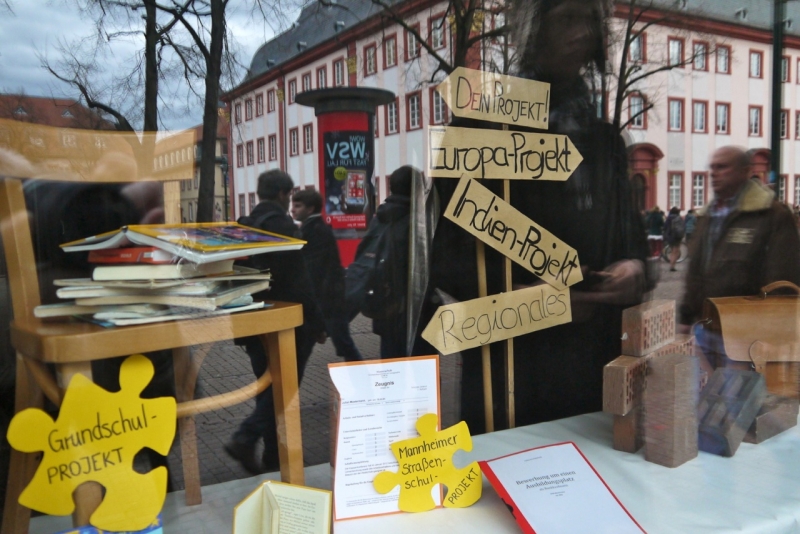 DEIN PROJEKT!
Europa-Projekt
Indien-Projekt
Regionales
WSV
Grundschul-
PROJEKT
Zeugnis
Mannheimer
Straßen-
schul-
PROJEKT
Bewerbung um einen
Ausbildungsplatz